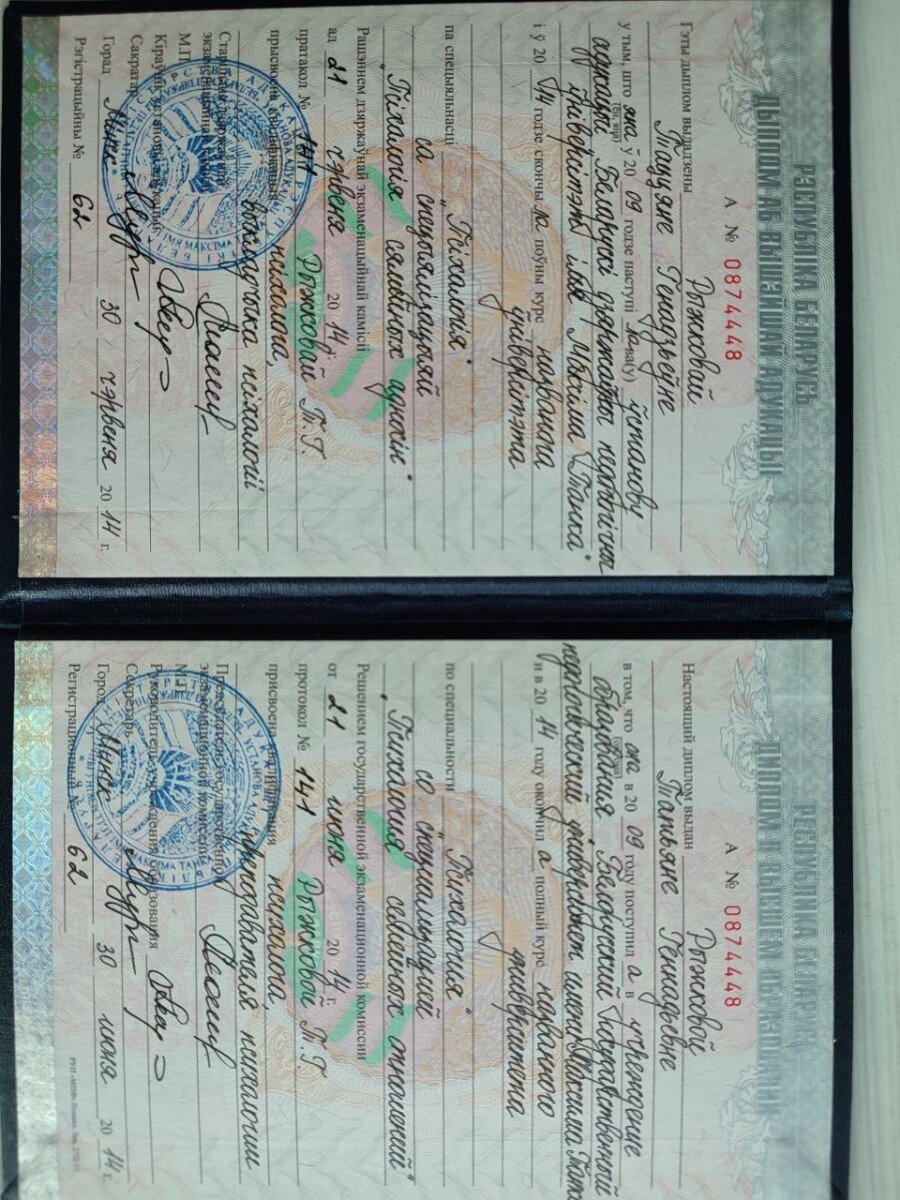 РЭСПУБЛІКА БЕЛАРУСЬ
ДЫПЛОМ АБ ВЫШЭЙШАЙ АДУКАЦЫІ
А № 0874448
Гэты дыплом выдадзены Рыжковай
Таццяне Генадзьеўне
у тым, што яна ў 20 09 годзе паступіла ва ўстанову
адукацыі „Беларускі дзяржаўны педагагічны
ўніверсітэт імя Максіма Танка"
і ў 20 14 годзе скончыла поўны курс названага
ўніверсітэта
па спецыяльнасці „Псіхалогія"
са спецыялізацыяй
„Псіхалогія сямейных адносін"
Рашэннем дзяржаўнай экзаменацыйнай камісіі
ад 21 чэрвеня 20 14 г.
пратакол № 141 Рыжковай Т.Г.
прысвоена кваліфікацыя псіхолага,
выкладчыка псіхалогіі
М.П.
Сакратар
Горад Мінск 30 чэрвеня 20 14 г.
Рэгістрацыйны № 62
РЕСПУБЛИКА БЕЛАРУСЬ
ДИПЛОМ О ВЫСШЕМ ОБРАЗОВАНИИ
А № 0874448
Настоящий диплом выдан Рыжковой
Татьяне Генадьевне
в том, что она в 20 09 году поступила в учреждение
образования „Белорусский государственный
педагогический университет имени Максима Танка"
и в 20 14 году окончила полный курс названного
университета
по специальности „Психология"
со специализацией
„Психология семейных отношений"
Решением государственной экзаменационной комиссии
от 21 июня 20 14 г.
протокол № 141 Рыжковой Т.Г.
присвоена квалификация психолога,
преподавателя психологии
Председатель государственной
экзаменационной комиссии
М.П.
Руководитель учреждения образования
Секретарь
Город Минск 30 июня 20 14 г.
Регистрационный № 62